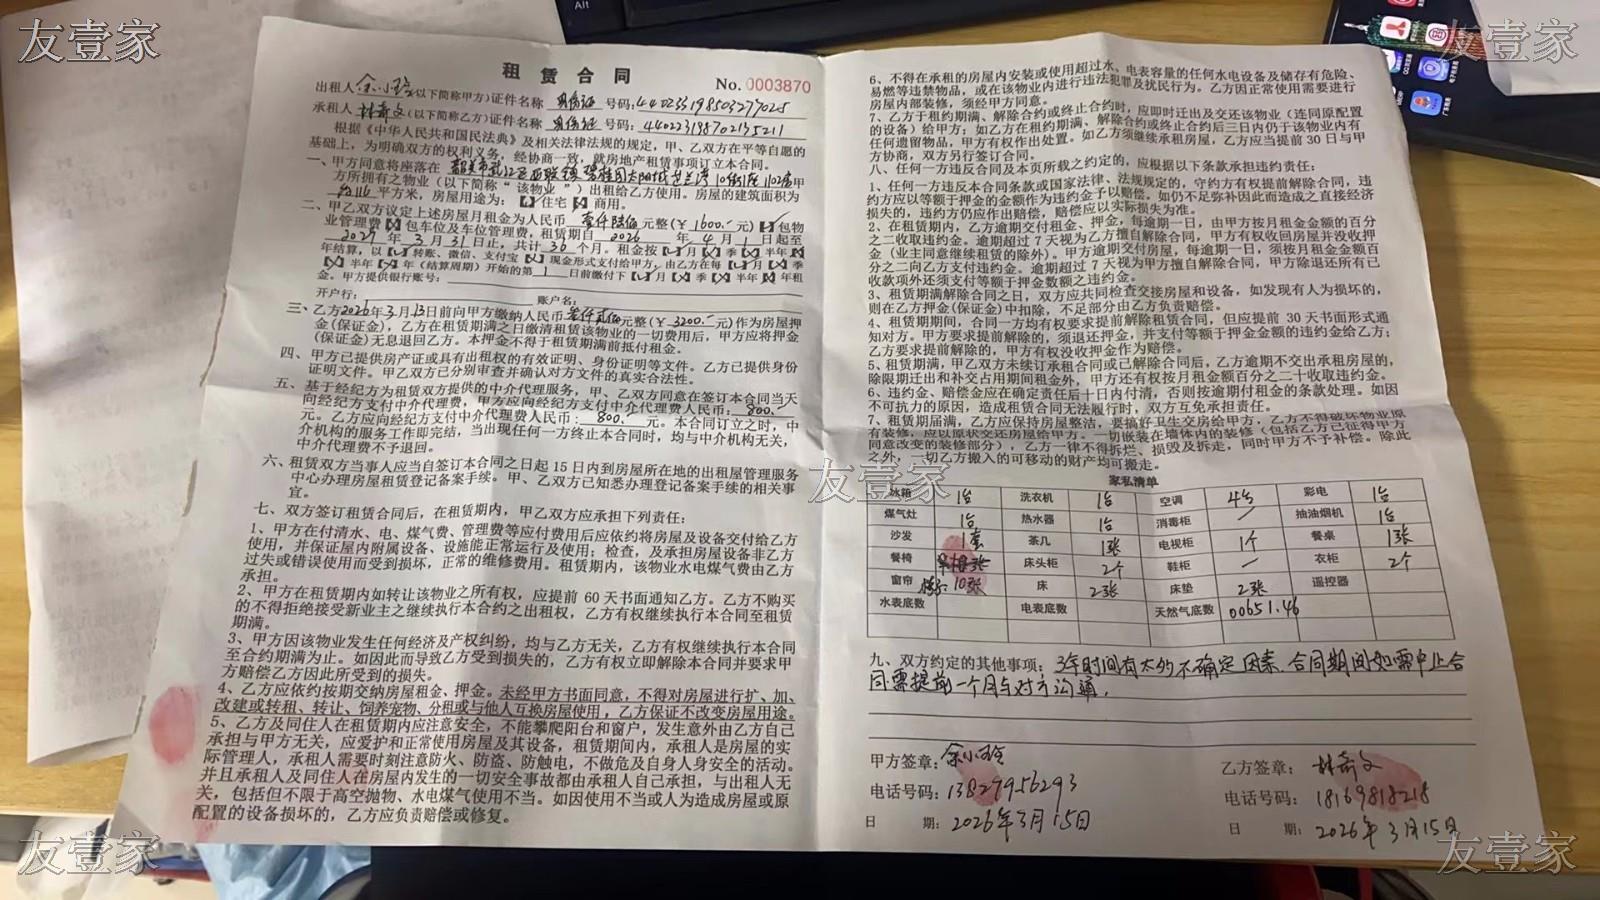 友壹家
友壹家
Alt
租 赁 合 同
No. 0003870
出租人余小玲(以下简称甲方)证件名称 身份证 号码:
承租人林奇文(以下简称乙方)证件名称 身份证 号码: 440223198702135211
根据《中华人民共和国民法典》及相关法律法规的规定,甲、乙双方在平等自愿的
基础上,为明确双方的权利义务,经协商一致,就房地产租赁事项订立本合同。
一、甲方同意将座落在 韶关市武江区西联镇碧桂园太阳城芷兰湾10街 1102房甲
方所拥有之物业(以下简称“该物业”)出租给乙方使用。房屋的建筑面积为
约116平方米,房屋用途为:【✓】住宅【✗】商用。
二、甲乙双方议定上述房屋月租金为人民币 壹仟陆佰 元整(¥ 1600.- 元)【✓】包物
业管理费【✗】包车位及车位管理费,租赁期自 2026 年 4 月 1 日起至
2029 年 3 月 31 日止,共计 36 个月。租金按【✓】月【✗】季【✗】半年【✗】
年结算,以【✓】转账、微信、支付宝【✗】现金形式支付给甲方,由乙方在每【✓】月【✗】季
【✗】半年【✗】年(结算周期)开始的第 1 日前缴付下【✓】月【✗】季【✗】半年【✗】年租
金。甲方提供银行账号:
开户行: 账户名:
三、乙方2026年3月 日前向甲方缴纳人民币 叁仟贰佰 元整(¥ 3200.- 元)作为房屋押
金(保证金),乙方在租赁期满之日缴清租赁该物业的一切费用后,甲方应将押金
(保证金)无息退回乙方。本押金不得于租赁期满前抵付租金。
四、甲方已提供房产证或具有出租权的有效证明、身份证明等文件。乙方已提供身份
证明文件。甲乙双方已分别审查并确认对方文件的真实合法性。
五、基于经纪方为租赁双方提供的中介代理服务,甲、乙双方同意在签订本合同当天
向经纪方支付中介代理费,甲方应向经纪方支付中介代理费人民币: 800.-
元。乙方应向经纪方支付中介代理费人民币: 800.- 元。本合同订立之时,中
介机构的服务工作即完结,当出现任何一方终止本合同时,均与中介机构无关,
中介代理费不予退回。
六、租赁双方当事人应当自签订本合同之日起 15 日内到房屋所在地的出租屋管理服务
中心办理房屋租赁登记备案手续。甲、乙双方已知悉办理登记备案手续的相关事
宜。
七、双方签订租赁合同后,在租赁期内,甲乙双方应承担下列责任:
1、甲方在付清水、电、煤气费、管理费等应付费用后应依约将房屋及设备交付给乙方
使用,并保证屋内附属设备、设施能正常运行及使用;检查,及承担房屋设备非乙方
过失或错误使用而受到损坏,正常的维修费用。租赁期内,该物业水电煤气费由乙方
承担。
2、甲方在租赁期内如转让该物业之所有权,应提前 60 天书面通知乙方。乙方不购买
的不得拒绝接受新业主之继续执行本合约之出租权,乙方有权继续执行本合同至租赁
期满。
3、甲方因该物业发生任何经济及产权纠纷,均与乙方无关,乙方有权继续执行本合同
至合约期满为止。如因此而导致乙方受到损失的,乙方有权立即解除本合同并要求甲
方赔偿乙方因此所受到的损失。
4、乙方应依约按期交纳房屋租金、押金。未经甲方书面同意,不得对房屋进行扩、加、
改建或转租、转让、饲养宠物、分租或与他人互换房屋使用,乙方保证不改变房屋用途。
5、乙方及同住人在租赁期内应注意安全,不能攀爬阳台和窗户,发生意外由乙方自己
承担与甲方无关,应爱护和正常使用房屋及其设备,租赁期间内,承租人是房屋的实
际管理人,承租人需要时刻注意防火、防盗、防触电,不做危及自身人身安全的活动。
并且承租人及同住人在房屋内发生的一切安全事故都由承租人自己承担,与出租人无
关,包括但不限于高空抛物、水电煤气使用不当。如因使用不当或人为造成房屋或原
配置的设备损坏的,乙方应负责赔偿或修复。
6、不得在承租的房屋内安装或使用超过水、电表容量的任何水电设备及储存有危险、
易燃等违禁物品,或在该物业内进行违法犯罪及扰民行为。乙方因正常使用需要进行
房屋内部装修,须经甲方同意。
7、乙方于租约期满、解除合约或终止合约时,应即时迁出及交还该物业(连同原配置
的设备)给甲方;如乙方在租约期满、解除合约或终止合约后三日内仍于该物业内有
任何遗留物品,甲方有权作出处置。如乙方须继续承租房屋,乙方应当提前 30 日与甲
方协商,双方另行签订合同。
八、任何一方违反本合同及本页所载之约定的,应根据以下条款承担违约责任:
1、任何一方违反本合同条款或国家法律、法规规定的,守约方有权提前解除合同,违
约方应以等额于押金的金额作为违约金予以赔偿。如仍不足弥补因此而造成之直接经济
损失的,违约方仍应作出赔偿,赔偿应以实际损失为准。
2、在租赁期内,乙方逾期交付租金、押金,每逾期一日,由甲方按月租金金额的百分
之二收取违约金。逾期超过 7 天视为乙方擅自解除合同,甲方有权收回房屋并没收押
金(业主同意继续租赁的除外)。甲方逾期交付房屋,每逾期一日,须按月租金金额百
分之二向乙方支付违约金。逾期超过 7 天视为甲方擅自解除合同,甲方除退还所有已
收款项外还须支付等额于押金数额之违约金。
3、租赁期满解除合同之日,双方应共同检查交接房屋和设备,如发现有人为损坏的,
则在乙方押金(保证金)中扣除,不足部分由乙方负责赔偿。
4、租赁期期间,合同一方均有权要求提前解除租赁合同,但应提前 30 天书面形式通
知对方。甲方要求提前解除的,须退还押金,并支付等额于押金金额的违约金给乙方;
乙方要求提前解除的,甲方有权没收押金作为赔偿。
5、租赁期满,甲乙双方未续订承租合同或已解除合同后,乙方逾期不交出承租房屋的,
除限期迁出和补交占用期间租金外,甲方还有权按月租金额百分之二十收取违约金。
6、违约金、赔偿金应在确定责任后十日内付清,否则按逾期付租金的条款处理。如因
不可抗力的原因,造成租赁合同无法履行时,双方互免承担责任。
7、租赁期届满,乙方应保持房屋整洁,要搞好卫生交房给甲方,乙方不得破坏物业原
有装修,应以原状交还房屋给甲方。一切嵌装在墙体内的装修(包括乙方已征得甲方
同意改变的装修部分),乙方一律不得拆烂、损毁及拆走,同时甲方不予补偿。除此
之外,一切乙方搬入的可移动的财产均可搬走。
友壹家
家私清单
冰箱 1台 洗衣机 1台 空调 4台 彩电 1台
煤气灶 1台 热水器 1台 消毒柜 — 抽油烟机 1台
沙发 1套 茶几 1张 电视柜 1个 餐桌 1张
餐椅 床头柜 2个 鞋柜 — 衣柜 2个
窗帘 10张 床 2张 床垫 2张 遥控器
水表底数 电表底数 天然气底数 00651.46
九、双方约定的其他事项:3年时间有太多不确定因素,合同期间如需中止合
同需提前一个月与对方沟通。
甲方签章:余小玲
乙方签章:林奇文
电话号码:13827956293
电话号码:18169818218
日 期:2026年3月15日
日 期:2026年3月15日
友壹家
友壹家